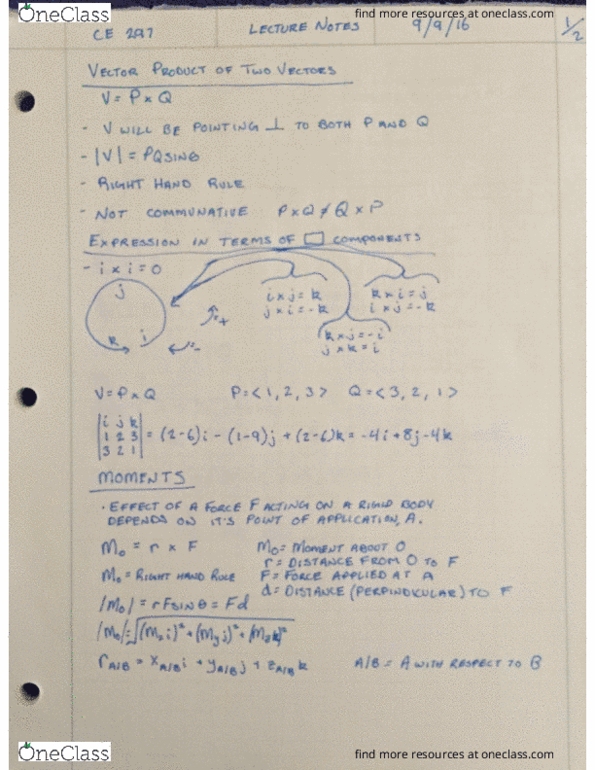 OneClass
find more resources at oneclass.com
CE 297 LECTURE NOTES 9/9/16 1/2
VECTOR PRODUCT OF TWO VECTORS
V = P x Q
- V WILL BE POINTING ⊥ TO BOTH P AND Q
- |V| = PQSINθ
- RIGHT HAND RULE
- NOT COMMUNATIVE P x Q ≠ Q x P
EXPRESSION IN TERMS OF □ COMPONENTS
- i x i = 0
j
k i
+
-
i x j = k
j x i = -k
k x i = j
i x j = -k
k x j = -i
j x k = i
V = P x Q P = <1, 2, 3> Q = <3, 2, 1>
|i j k|
|1 2 3| = (2-6)i - (1-9)j + (2-6)k = -4i + 8j - 4k
|3 2 1|
MOMENTS
· EFFECT OF A FORCE F ACTING ON A RIGID BODY
DEPENDS ON IT'S POINT OF APPLICATION, A.
Mo = r x F Mo = MOMENT ABOUT O
r = DISTANCE FROM O TO F
Mo = RIGHT HAND RULE F = FORCE APPLIED AT A
d = DISTANCE (PERPINDICULAR) TO F
|Mo| = rFSINθ = Fd
|Mo| = √(Mxi)² + (Myj)² + (Mzk)²
rA/B = xA/Bi + yA/Bj + zA/Bk A/B = A WITH RESPECT TO B
OneClass
find more resources at oneclass.com